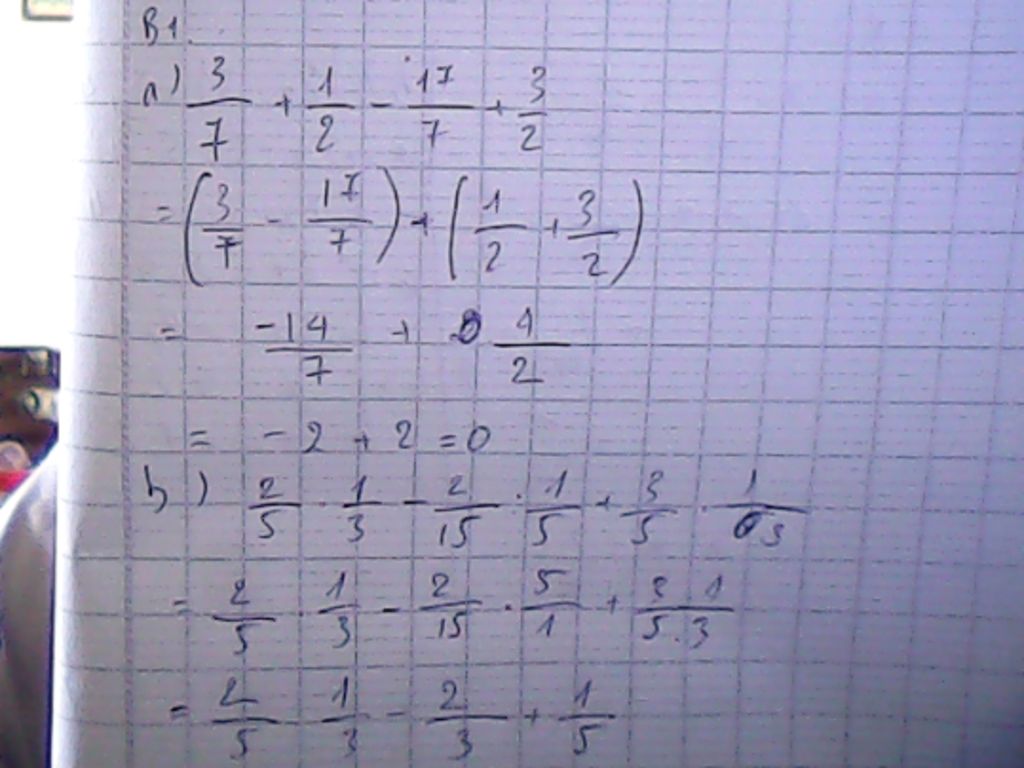 B1.
a) 3/7 + 1/2 - 17/7 + 3/2
= (3/7 - 17/7) + (1/2 + 3/2)
= -14/7 + 4/2
= -2 + 2 = 0
b) 2/5 . 1/3 - 2/15 : 1/5 + 3/5 . 1/3
= 2/5 . 1/3 - 2/15 . 5/1 + 3.1/5.3
= 2/5 . 1/3 - 2/3 + 1/5